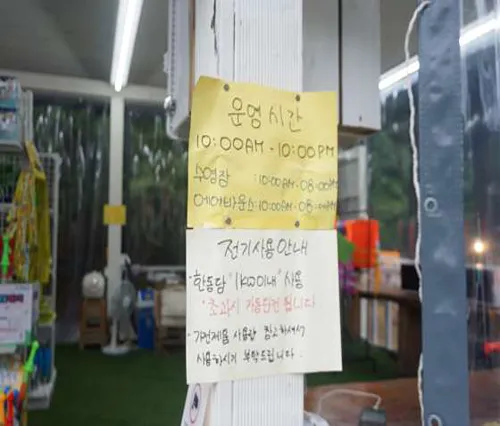 운영시간
10:00AM - 10:00PM
수영장 : 10:00AM - 08:00PM
에어바운스 : 10:00AM - 08:00PM
전기사용안내
· 한동당 "1KW이내" 사용
*초과시 자동차단 됩니다
· 가전제품 사용량 참고하셔서
사용하시기 부탁드립니다.